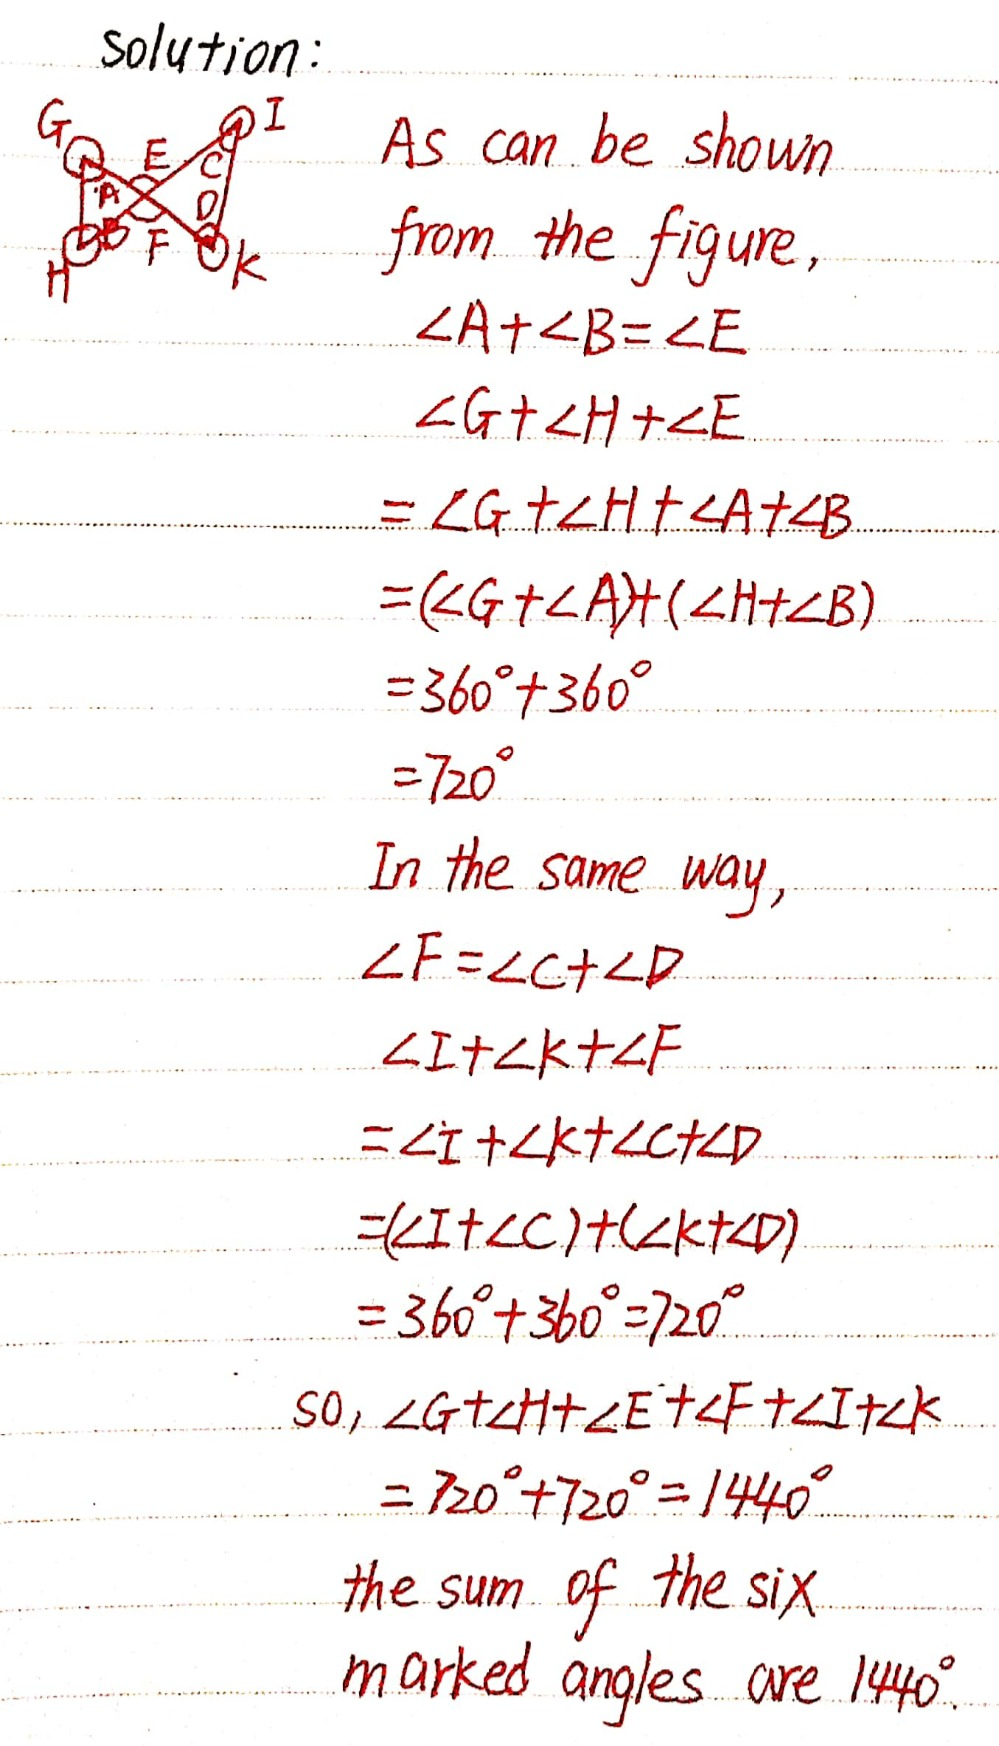 solution:
G E I
A C
B D
H F K
As can be shown
from the figure,
∠A+∠B=∠E
∠G+∠H+∠E
=∠G+∠H+∠A+∠B
=(∠G+∠A)+(∠H+∠B)
=360°+360°
=720°
In the same way,
∠F=∠C+∠D
∠I+∠K+∠F
=∠I+∠K+∠C+∠D
=(∠I+∠C)+(∠K+∠D)
=360°+360°=720°
so, ∠G+∠H+∠E+∠F+∠I+∠K
=720°+720°=1440°
the sum of the six
marked angles are 1440°.